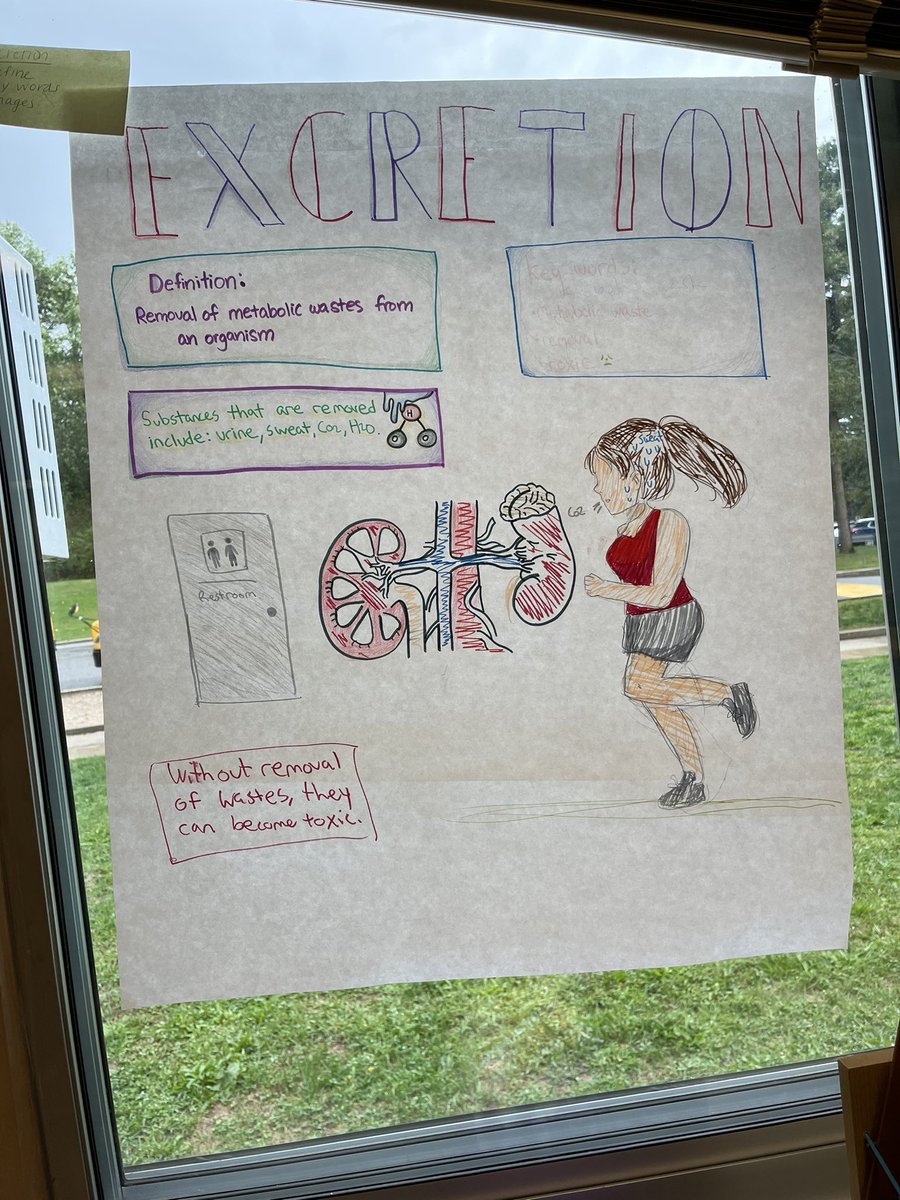 efine
y words
mages
EXCRETION
Definition:
Removal of metabolic wastes from
an organism
Key words:
metabolic waste
removal
toxic
Substances that are removed
include: urine, sweat, CO2, H2O.
H
sweat
CO2
Restroom
Without removal
of wastes, they
can become toxic.